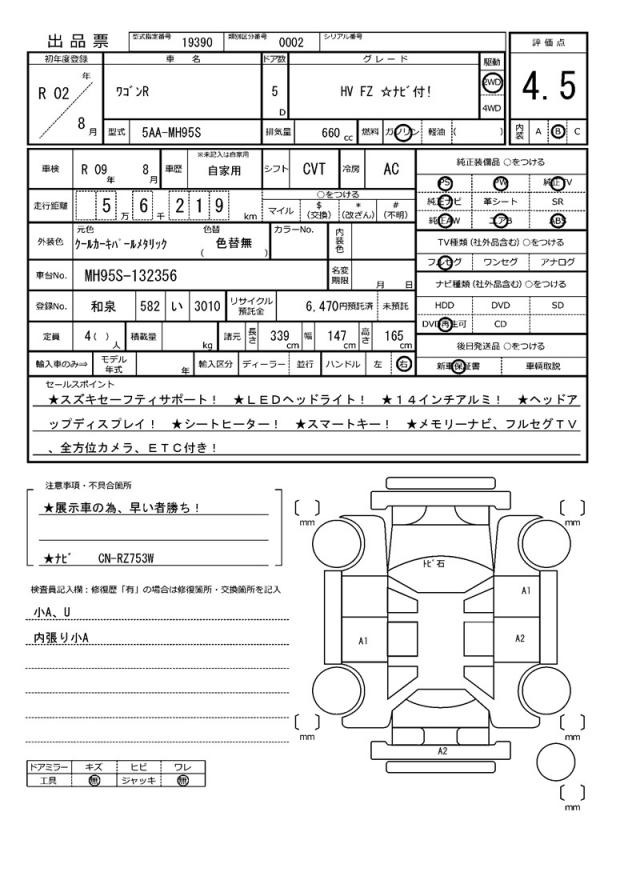 出品票 型式指定番号 19390 類別区分番号 0002 シリアル番号
評価点
4.5
内装 A B C
初年度登録 車名 ドア数 グレード 駆動
R 02 年 8 月
ﾜｺﾞﾝR 5 D HV FZ ☆ﾅﾋﾞ付! 2WD
4WD
型式 5AA-MH95S 排気量 660 cc 燃料 ガソリン 軽油 ( )
車検 R 09 年 8 月 車歴 ※未記入は自家用 自家用 シフト CVT 冷房 AC
走行距離 5 万 6 千 2 1 9 km
○をつける
マイル $(交換) *(改ざん) #(不明)
外装色 元色 ｸｰﾙｶｰｷﾊﾟｰﾙﾒﾀﾘｯｸ 色替 ( 色替無 ) カラーNo. 内装色
車台No. MH95S-132356 名変期限 月 日
登録No. 和泉 582 い 3010 リサイクル預託金 6,470円預託済 未預託
定員 4 ( ) 人 積載量 kg 諸元 長さ 339 cm 幅 147 cm 高さ 165 cm
輸入車のみ⇒ モデル年式 年 輸入区分 ディーラー 並行 ハンドル 左 右
純正装備品 ○をつける
PS PW 純正TV
純正ナビ 革シート SR
純正AW エアB ABS
TV種類 (社外品含む) ○をつける
フルセグ ワンセグ アナログ
ナビ種類 (社外品含む) ○をつける
HDD DVD SD
DVD再生可 CD
後日発送品 ○をつける
新車保証書 車輌取説
セールスポイント
★スズキセーフティサポート! ★ＬＥＤヘッドライト! ★１４インチアルミ! ★ヘッドア
ップディスプレイ! ★シートヒーター! ★スマートキー! ★メモリーナビ、フルセグＴＶ
、全方位カメラ、ＥＴＣ付き!
注意事項・不具合箇所
★展示車の為、早い者勝ち!
★ﾅﾋﾞ CN-RZ753W
検査員記入欄：修復歴「有」の場合は修復箇所・交換箇所を記入
小A、U
内張り小A
ドアミラー キズ ヒビ ワレ
工具 無 ジャッキ 無
mm
mm
ﾄﾋﾞ石
A1
A1
A2
mm
mm
A2
mm